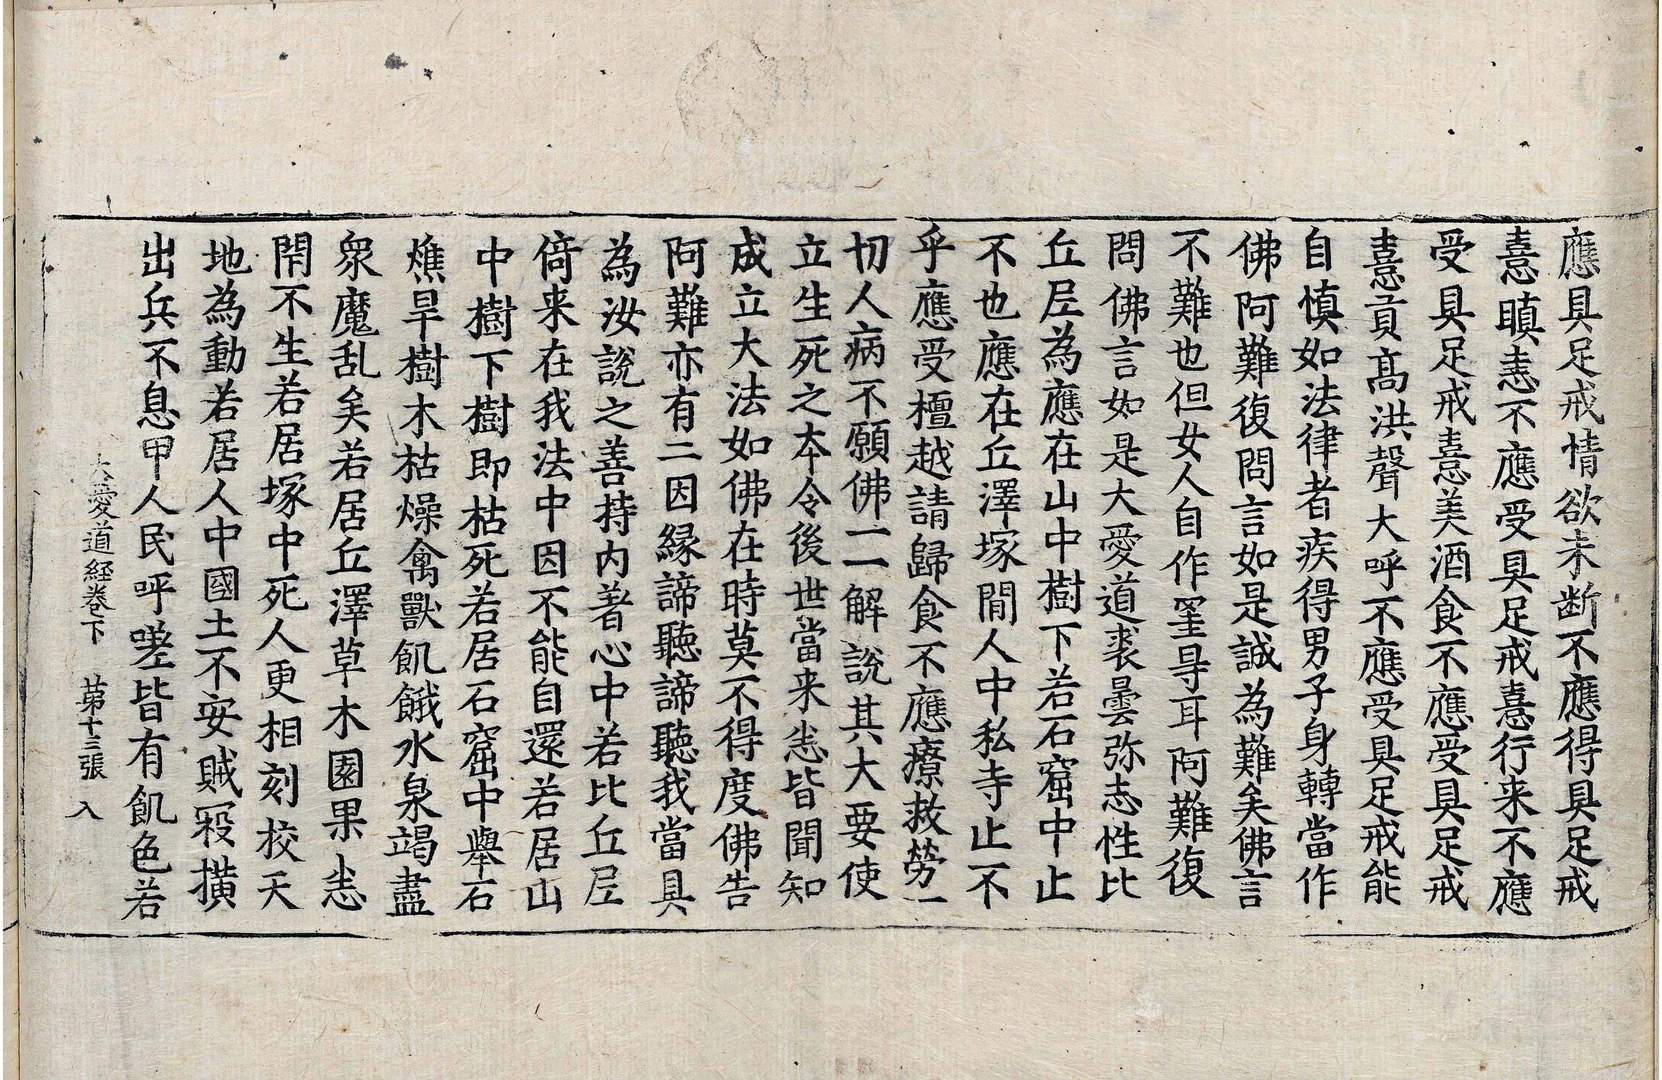 應具足戒情欲未断不應得具足戒
憙瞋恚不應受具足戒憙行来不應
受具足戒憙美酒食不應受具足戒
憙貢高洪聲大呼不應受具足戒能
自慎如法律者疾得男子身轉當作
佛阿難復問言如是誠為難矣佛言
不難也但女人自作䍐㝵耳阿難復
問佛言如是大愛道裘曇弥志性比
丘𡰱為應在山中樹下若石窟中止
不也應在丘澤塚間人中私寺止不
乎應受檀越請歸食不應療救勞一
切人病不願佛一一解說其大要使
立生死之本令後世當来恙皆聞知
成立大法如佛在時莫不得度佛告
阿難亦有二因緣諦聽諦聽我當具
為汝說之善持内著心中若比丘𡰱
倚来在我法中因不能自還若居山
中樹下樹即枯死若居石窟中舉石
燋旱樹木枯燥禽獸飢餓水泉竭盡
衆魔乱矣若居丘澤草木園果恙
閇不生若居塚中死人更相刻校天
地為動若居人中國土不安賊𡨥撗
出兵不息甲人民呼嗟皆有飢色若
大愛道經卷下 苐十三張 入